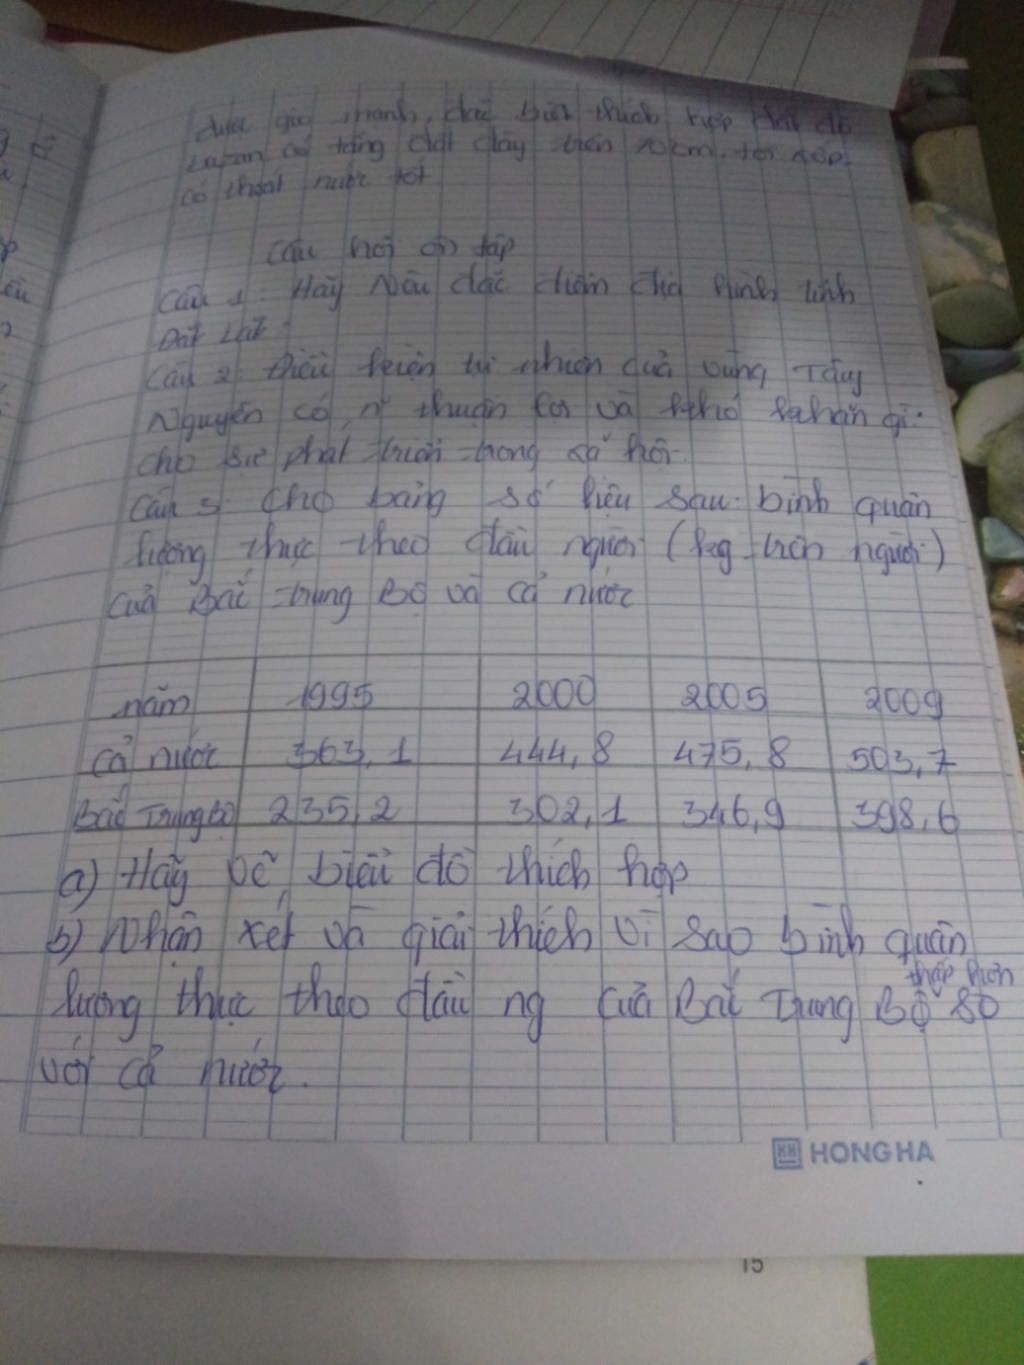 được gió mạnh, đặc biệt thích hợp đất đỏ
bazan có tầng đất dày trên 70cm, tơi xốp,
có thoát nước tốt
Câu hỏi ôn tập
Câu 1: Hãy Nêu đặc điểm địa hình tỉnh
Đắk Lắk.
Câu 2: Điều kiện tự nhiên của vùng Tây
Nguyên có n~ thuận lợi và khó khăn gì
cho sự phát triển trong xã hội.
Câu 3: Cho bảng số liệu sau: bình quân
lương thực theo đầu người (kg trên người)
của Bắc trung Bộ và cả nước
năm 1995 2000 2005 2009
cả nước 363,1 444,8 475,8 503,7
Bắc Trung Bộ 235,2 302,1 346,9 398,6
a) Hãy vẽ biểu đồ thích hợp
b) Nhận xét và giải thích vì sao bình quân
lương thực theo đầu ng của Bắc Trung Bộ thấp hơn so
với cả nước.
HONG HA
15